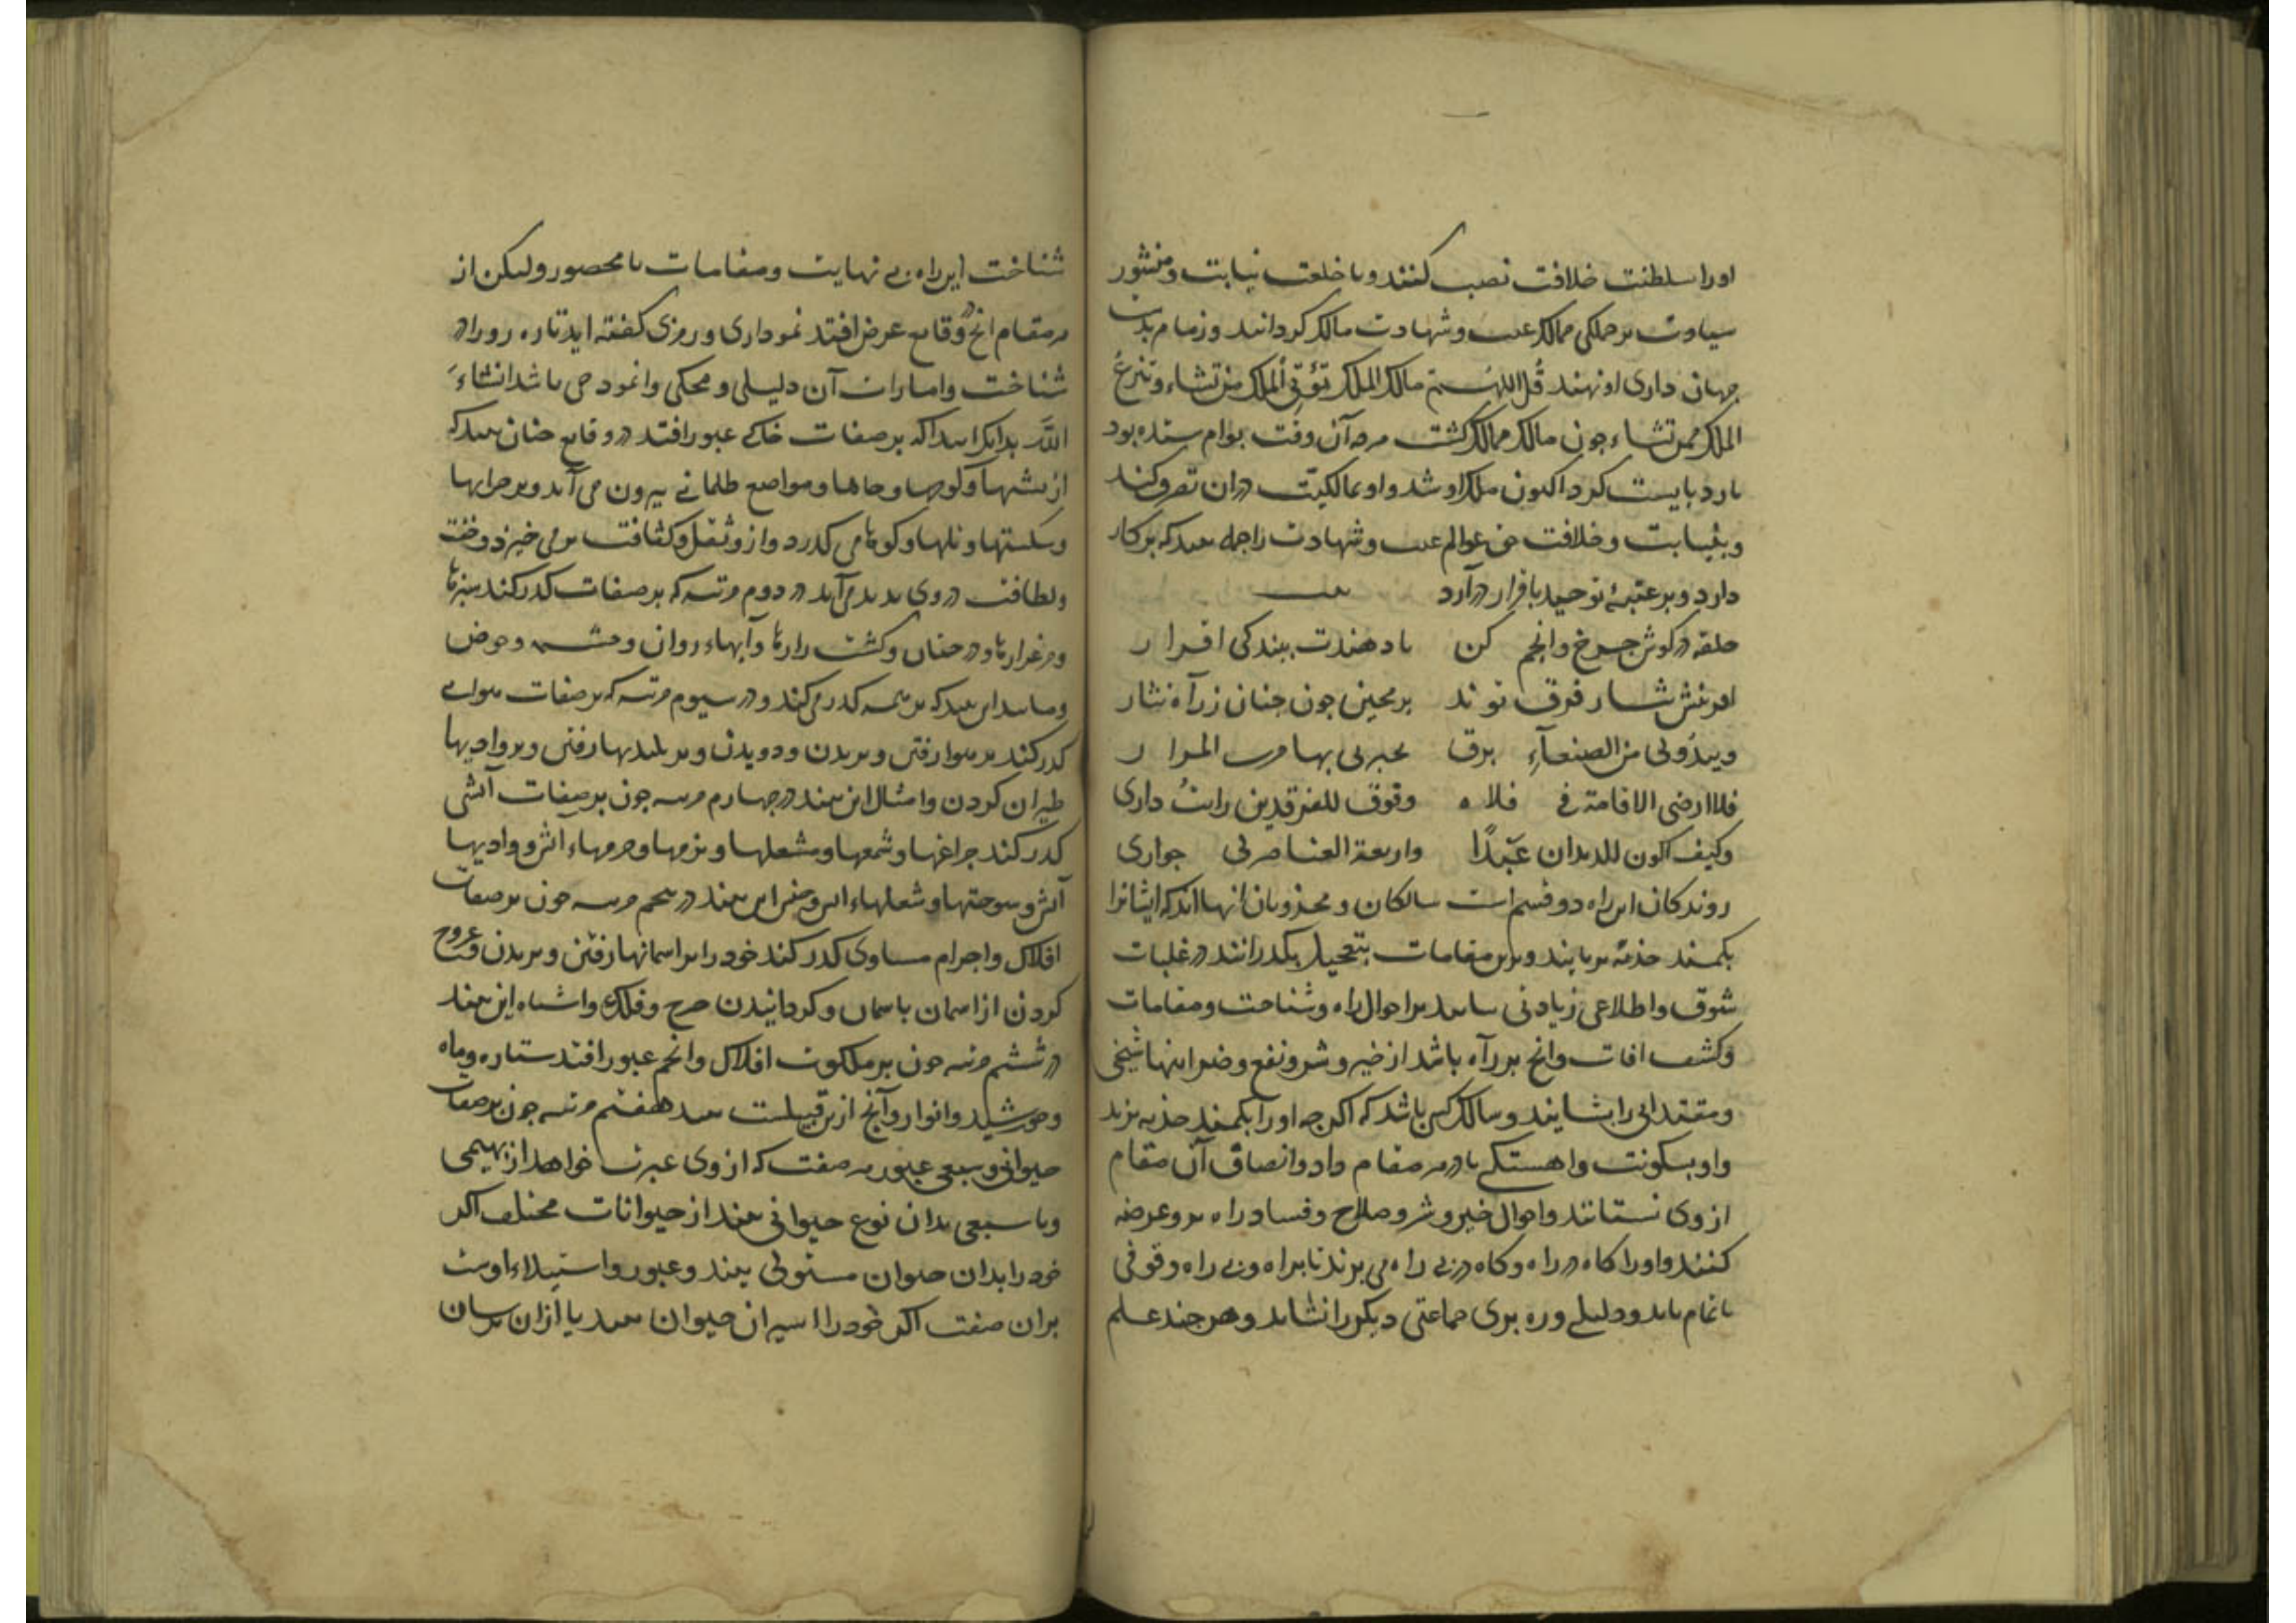 اورا سلطنت خلافت نصب کنند و با خلعت نیابت و منشور
سیاوت بر جملکی ممالک غیب و شهادت مالک کردانند و زمام
جهان داری او نهند قُل اللهُم مالک الملک تؤتی الملک من تشاء و تنزعُ
الملک ممن تشاء جون مالک ممالک کشت هرجه آن وقت بوام ستده بود
بارد بایست کرد اکنون ملک او شد و او بمالکیت دران تصرف کند
و بنیابت و خلافت حق عوالم غیب و شهادت را جمله بیند که بر کار
دارد و بر عتبهٔ توحید باقرار درآرد بیت
حلقه در کوش جرخ و انجم کن تا دهندت ببندکی اقرار
افرینش نثار فرق تو اند بر مجین جون جنان ز راه نثار
ویبدُولی من الصنعآءِ برق یخبرنی بها قرب المزار
فلا ارضی الاقامة فی فلاه وفوق الفرقدین رایتُ داری
وکیف اکون للدیدان عَبدًا واربعة العناصر لی جواری
روندکان این راه دو قسم است سالکان و مجذوبان انها اند که ایشانرا
بکمند جذبه بربایند و برین مقامات بتعجیل بکدرانند در غلبات
شوق و اطلاعی زیادتی نیابند بر احوال راه و شناخت و مقامات
و کشف افات و انج بر راه باشد از خیر و شر و نفع و ضر اینها شیخی
و مقتدائی را نشایند و سالک کسی باشد که اکر جه او را بکمند جذبه برند
و او بسکونت و اهستکی تا در هر مقام داد و انصاف آن مقام
از وی نستانند و احوال خیر و شر و صلاح و فساد راه برو عرضه
کنند و او را کاه در راه و کاه در بی راه می برند تا بر راه و بی راه وقوفی
تا تمام یابد و دلیلی و ره بری جماعتی دیکر را نشاید و هر جند علم
شناخت این راه بی نهایت و مقامات نامحصور و لیکن از
هر مقام انج در وقایع عرض افتد نموداری و رمزی کفته اید تا ره رو را در
شناخت و امارات آن دلیلی و محکی و انمودجی باشد انشاءَ
اللهَ بدانک ابتدا که بر صفات خاکی عبور افتد در وقایع جنان بیند که
از بشتها و کورها و جاهها و مواضع ظلمانی بیرون می آید و بر خرابها
و شکستها و تلها و کوهها می کدرد و از و ثقل و کثافت بر می خیزد و خفت
و لطافت در وی بدید می آید در دوم مرتبه که بر صفات کدر کند سبزها
و مرغزارها و درختان و کشت زارها و آبهاء روان و جشمه و حوض
و مانند این بیند که بر همه کدر می کند و در سیوم مرتبه که بر صفات هوایی
کدر کند بر هوا رفتن و بریدن و دویدن و بر بلندیها رفتن و بر وادیها
طیران کردن و امثال این بیند در جهارم مرتبه جون بر صفات آتشی
کدر کند جراغها و شمعها و مشعلها و بزمها و حرمهاء اتش و وادیها
آتش و سوختنها و شعلهاء بیند در بنجم مرتبه جون بر صفات
افلاک و اجرام سماوی کدر کند خود را بر اسمانها رفتن و بریدن و عروج
کردن از اسمان باسمان و کردانیدن جرخ و فلک و اشباه این بیند
در ششم مرتبه جون بر ملکوت افلاک و انجم عبور افتد ستاره و ماه
و خورشید و انوار و آنج ازین قبیلست بیند هفتم مرتبه جون بر صفات
حیوانی و سبعی عبور صفت که از وی عبرت خواهد از بهیمی
و یا سبعی بدان نوع حیوانی بیند از حیوانات مختلف اکر
خود را بدان حیوان مستولی بیند و عبور و استیلاء اوست
بران صفت اکر خود را اسیر ان حیوان بیند یا ازان ترسان